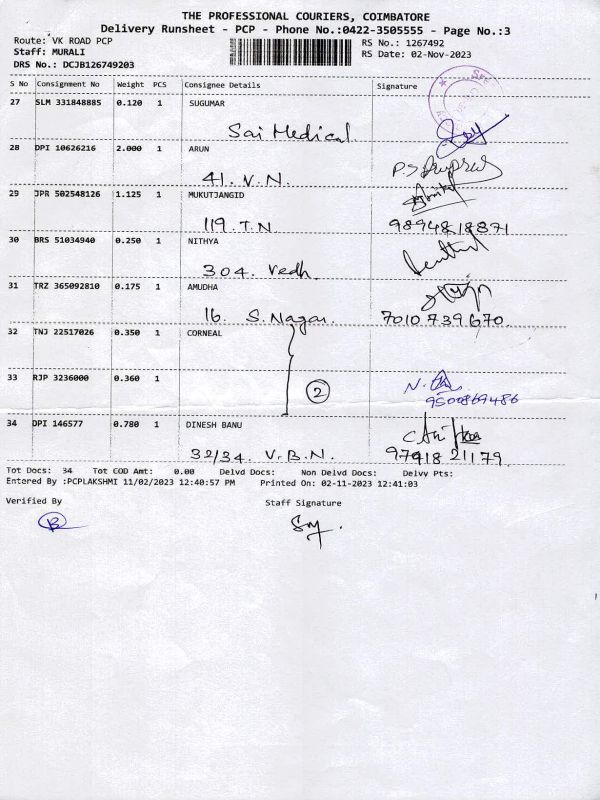 THE PROFESSIONAL COURIERS, COIMBATORE
Delivery Runsheet - PCP - Phone No.:0422-3505555 - Page No.:3
Route: VK ROAD PCP RS No.: 1267492
Staff: MURALI RS Date: 02-Nov-2023
DRS No.: DCJB126749203
S No Consignment No Weight PCS Consignee Details Signature
27 SLM 331848885 0.120 1 SUGUMAR
Sai Medical
28 DPI 10626216 2.000 1 ARUN
41. V.N.
29 JPR 502548126 1.125 1 MUKUTJANGID
119. T.N 9894818871
30 BRS 51034940 0.250 1 NITHYA
304. Vedh.
31 TRZ 365092810 0.175 1 AMUDHA
16. S. Nagar. 7010739670.
32 TNJ 22517026 0.350 1 CORNEAL
33 RJP 3236000 0.360 1
2 9500869486
34 DPI 146577 0.780 1 DINESH BANU
32/34. V.B.N. 9791821179
Tot Docs: 34 Tot COD Amt: 0.00 Delvd Docs: Non Delvd Docs: Delvy Pts:
Entered By :PCPLAKSHMI 11/02/2023 12:40:57 PM Printed On: 02-11-2023 12:41:03
Verified By Staff Signature